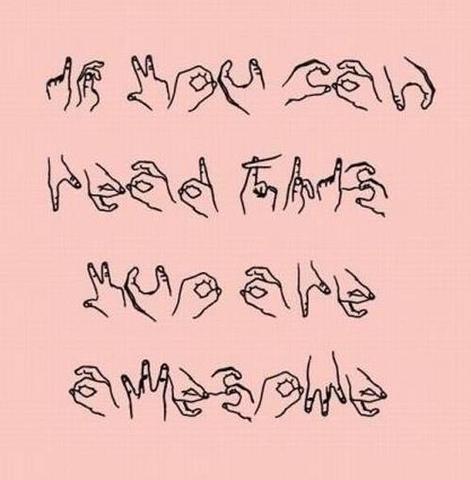 if you can
read this
yuo are
awesome